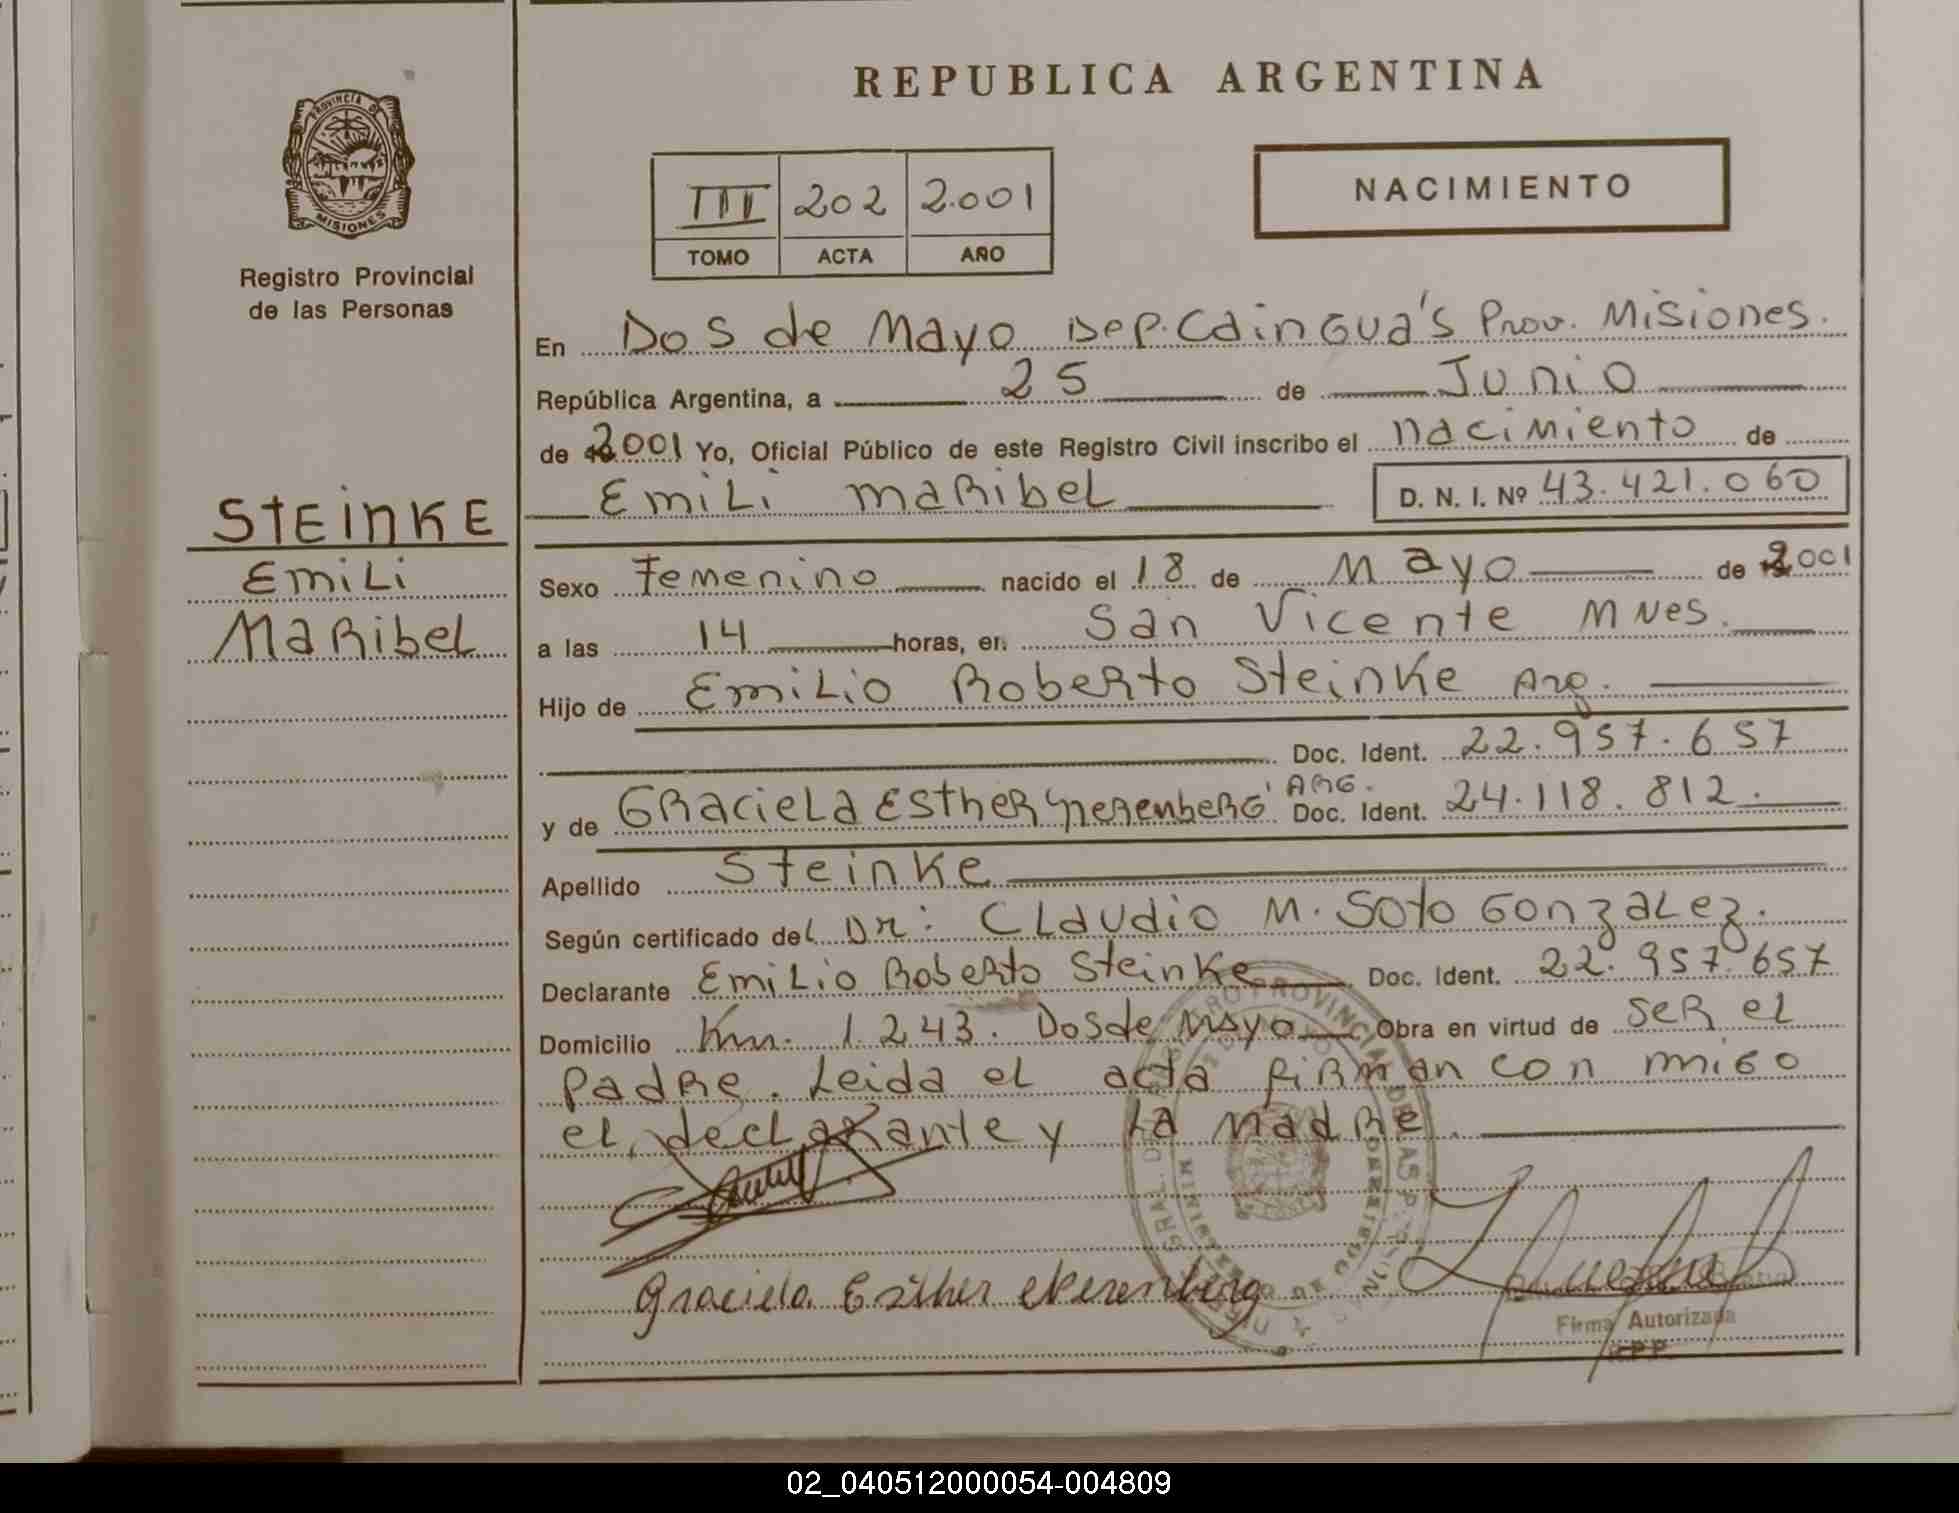 REPUBLICA ARGENTINA
PROVINCIA DE
MISIONES
Registro Provincial
de las Personas
III 202 2.001
TOMO ACTA AÑO
NACIMIENTO
STEINKE
EMILI
MARIBEL
En Dos de Mayo Dep. Cainguá's Prov. Misiones.
República Argentina, a 25 de Junio
de 2001 Yo, Oficial Público de este Registro Civil inscribo el nacimiento de
EMILI MARIBEL D. N. I. Nº 43.421.060
Sexo Femenino nacido el 18 de Mayo de 2001
a las 14 horas, en San Vicente MNES.
Hijo de Emilio Roberto Steinke Arg.
Doc. Ident. 22.957.657
y de GRACIELA ESTHER NERENBERG ARG. Doc. Ident. 24.118.812.
Apellido Steinke
Según certificado del DR: CLAUDIO M. SOTO GONZALEZ.
Declarante Emilio Roberto Steinke Doc. Ident. 22.957.657
Domicilio Km. 1.243. Dos de Mayo Obra en virtud de SER EL
PADRE. Leida el acta FIRMAN CON MIGO
EL DECLARANTE y LA MADRE.
Graciela Esther Nerenberg
Firma Autorizada
02_040512000054-004809